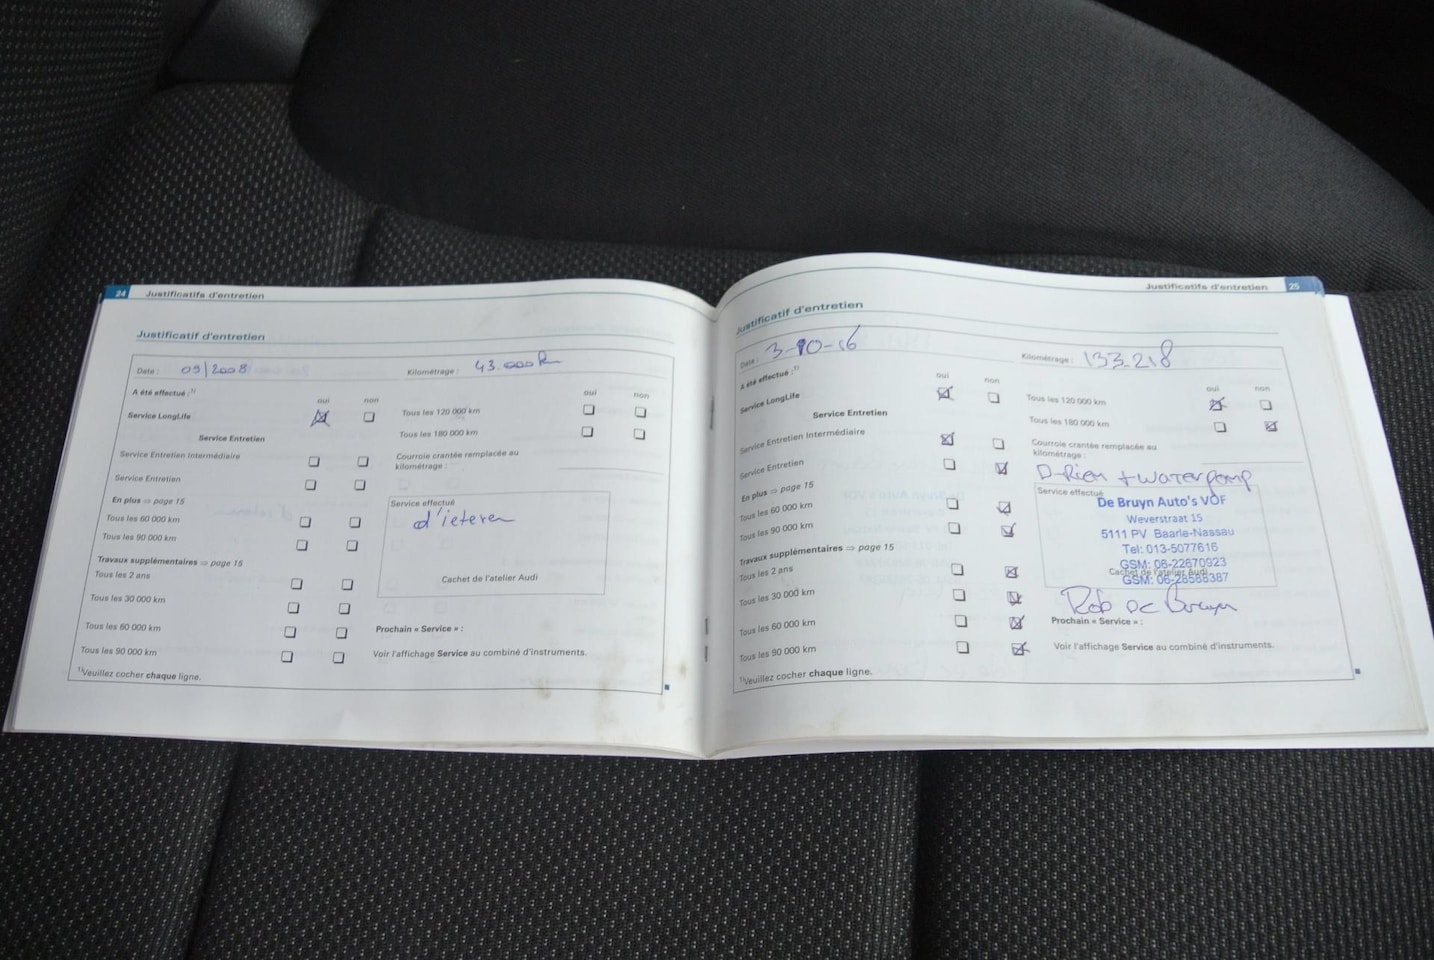 24 Justificatifs d'entretien
Justificatif d'entretien
Date : 09/2008
Kilométrage : 43.000 km
A été effectué :¹⁾
oui non
Service LongLife
Service Entretien
Service Entretien Intermédiaire
Service Entretien
En plus ⇒ page 15
Tous les 60 000 km
Tous les 90 000 km
Travaux supplémentaires ⇒ page 15
Tous les 2 ans
Tous les 30 000 km
Tous les 60 000 km
Tous les 90 000 km
¹⁾Veuillez cocher chaque ligne.
oui non
Tous les 120 000 km
Tous les 180 000 km
Courroie crantée remplacée au
kilométrage :
Service effectué
d'ieteren
Cachet de l'atelier Audi
Prochain « Service » :
Voir l'affichage Service au combiné d'instruments.
Justificatifs d'entretien 25
Justificatif d'entretien
Date : 3-10-16
Kilométrage : 133.218
A été effectué :¹⁾
oui non
Service LongLife
Service Entretien
Service Entretien Intermédiaire
Service Entretien
En plus ⇒ page 15
Tous les 60 000 km
Tous les 90 000 km
Travaux supplémentaires ⇒ page 15
Tous les 2 ans
Tous les 30 000 km
Tous les 60 000 km
Tous les 90 000 km
¹⁾Veuillez cocher chaque ligne.
oui non
Tous les 120 000 km
Tous les 180 000 km
Courroie crantée remplacée au
kilométrage :
D-Riem + waterpomp
Service effectué
De Bruyn Auto's VOF
Weverstraat 15
5111 PV Baarle-Nassau
Tel: 013-5077616
GSM: 06-22670923
Cachet de l'atelier Audi
GSM: 06-28588387
Rob de Bruyn
Prochain « Service » :
Voir l'affichage Service au combiné d'instruments.